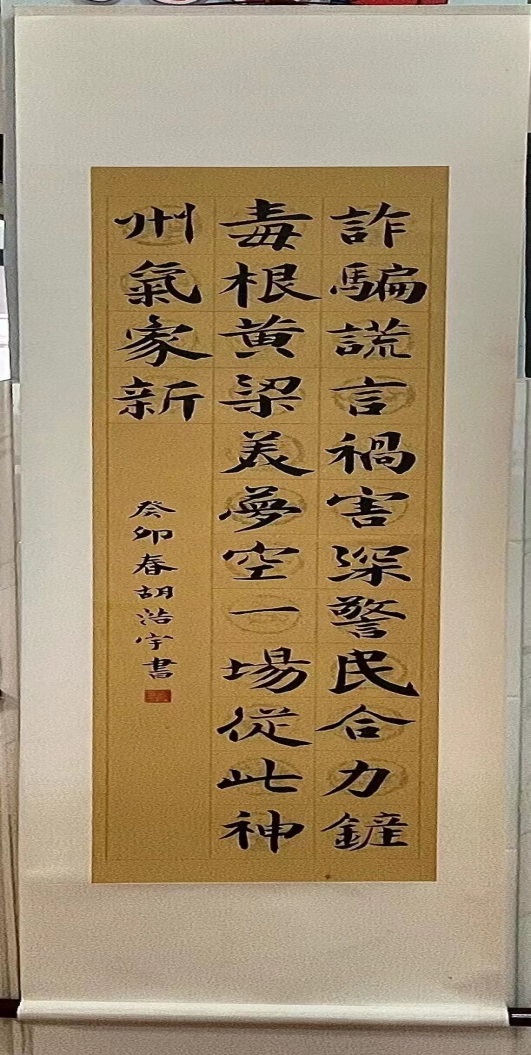 詐騙謊言禍害深警民合力鏟
毒根黄梁美夢空一場從此神
州氣象新
癸卯春胡浩宇書